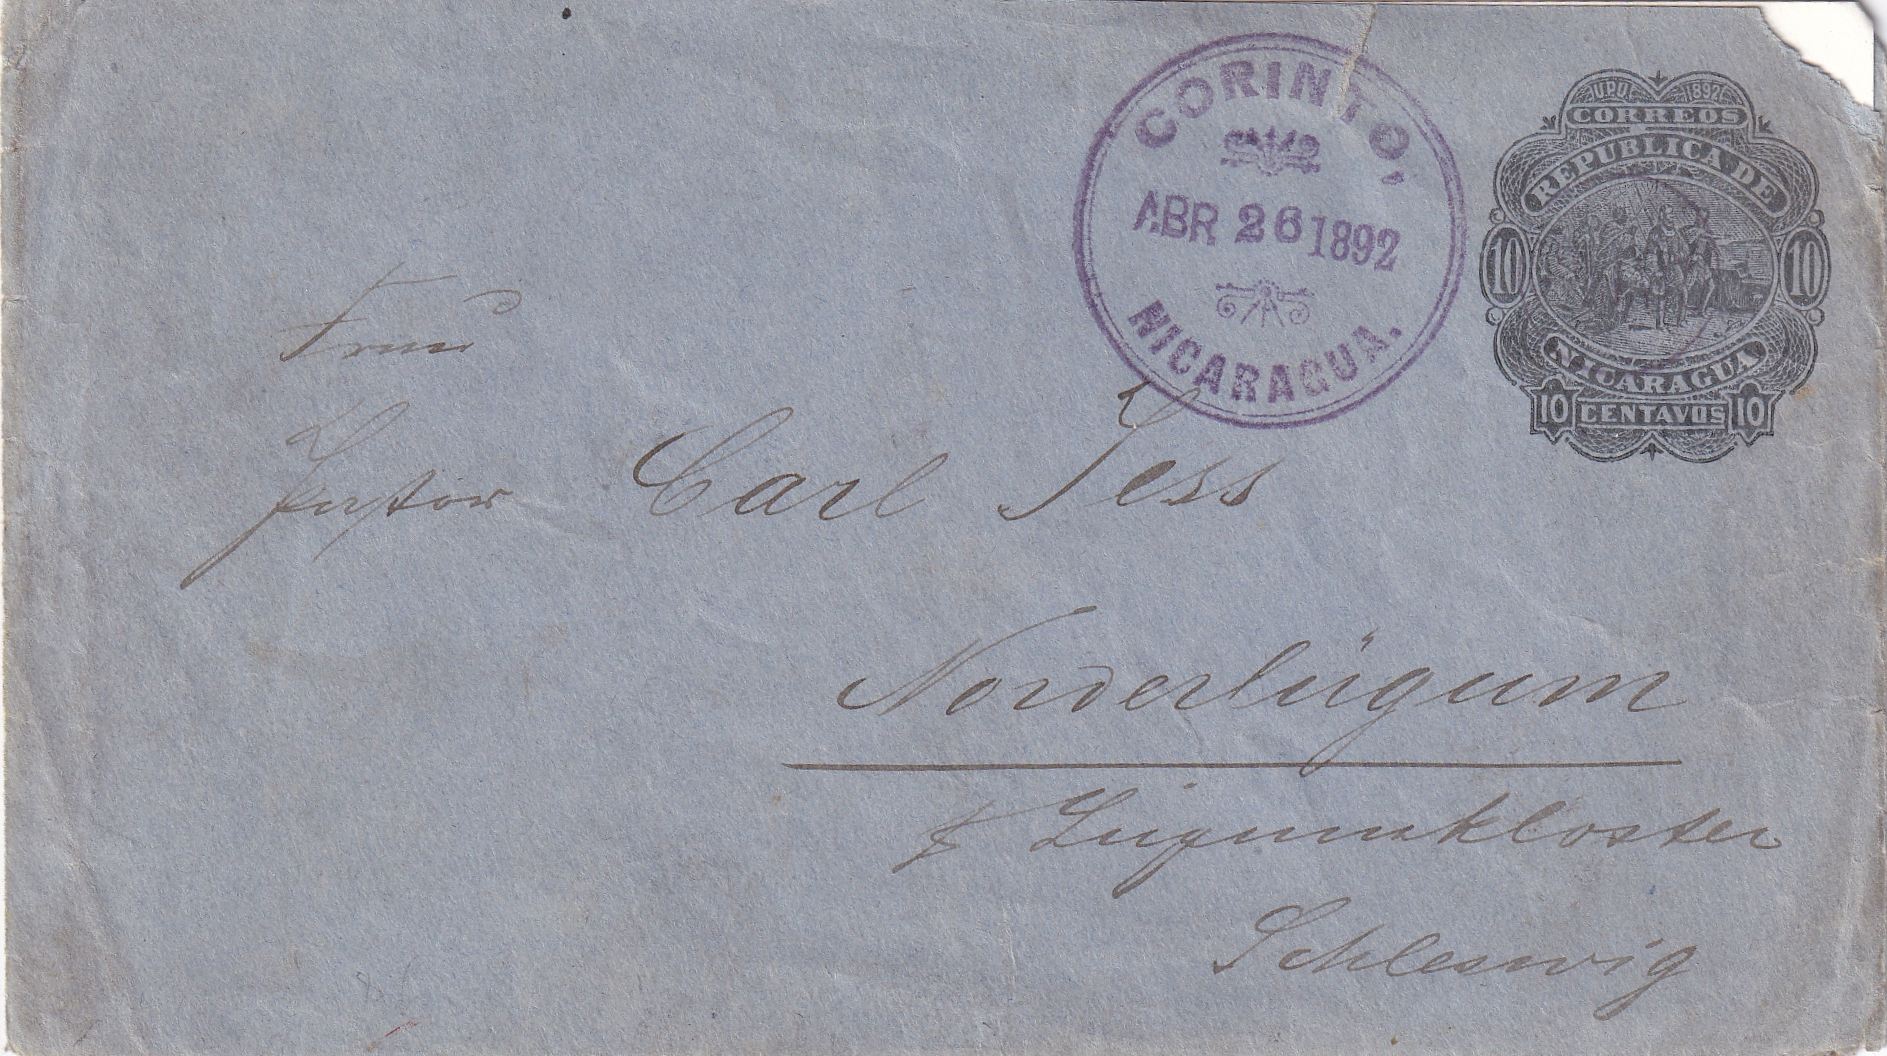 CORINTO,
ABR 26 1892
NICARAGUA.
U.P.U. 1892
CORREOS
REPUBLICA DE
10 10
NICARAGUA
10 CENTAVOS 10
Frau
Pastor Carl Jess
Norderlügum
p Lügumkloster
Schleswig